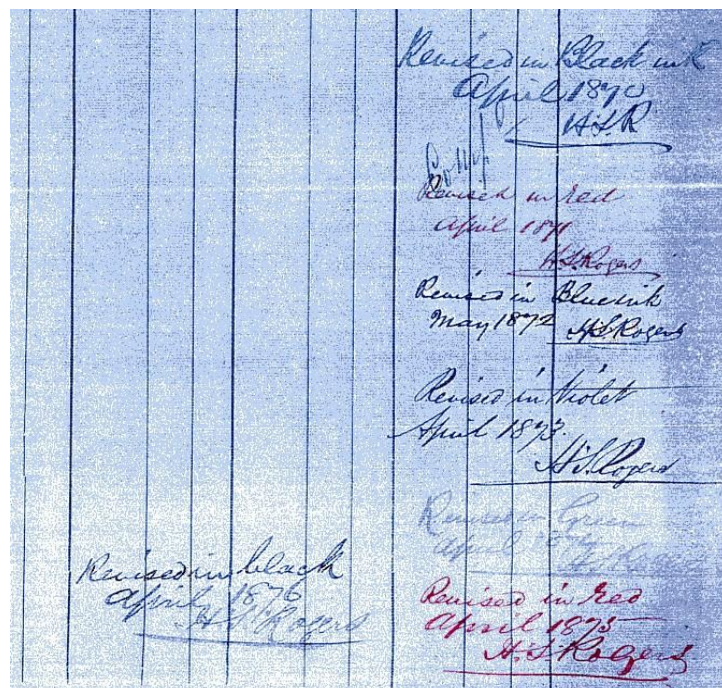 Revised in Black ink
April 1870
HSR
Revised in red
April 1871
H.S. Rogers
Revised in Blue ink
May 1872 H.S. Rogers
Revised in Violet
April 1873.
H.S. Rogers
Revised in Green
April 1874
H.S. Rogers
Revised in red
April 1875
H.S. Rogers
Revised in black
April 1876
H.S. Rogers